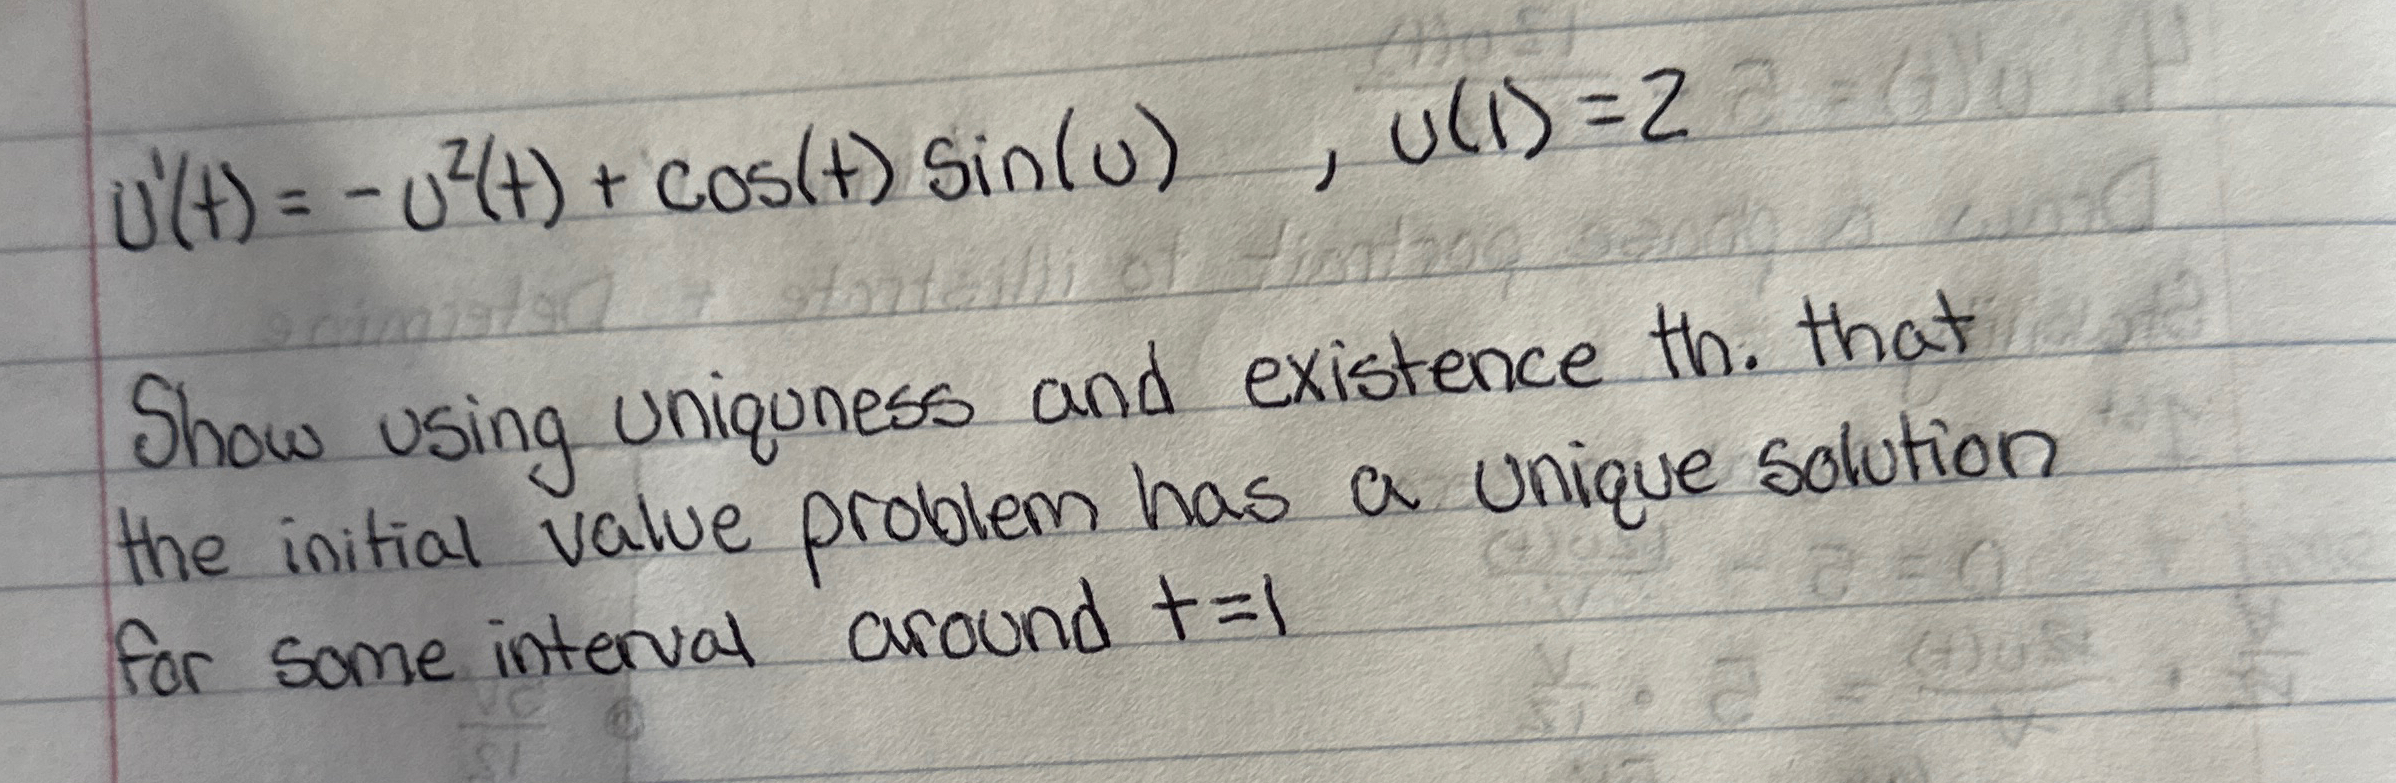 u'(t) = -u²(t) + cos(t) sin(u) , u(1) = 2
Show using uniquness and existence th. that
the initial value problem has a unique solution
for some interval around t=1